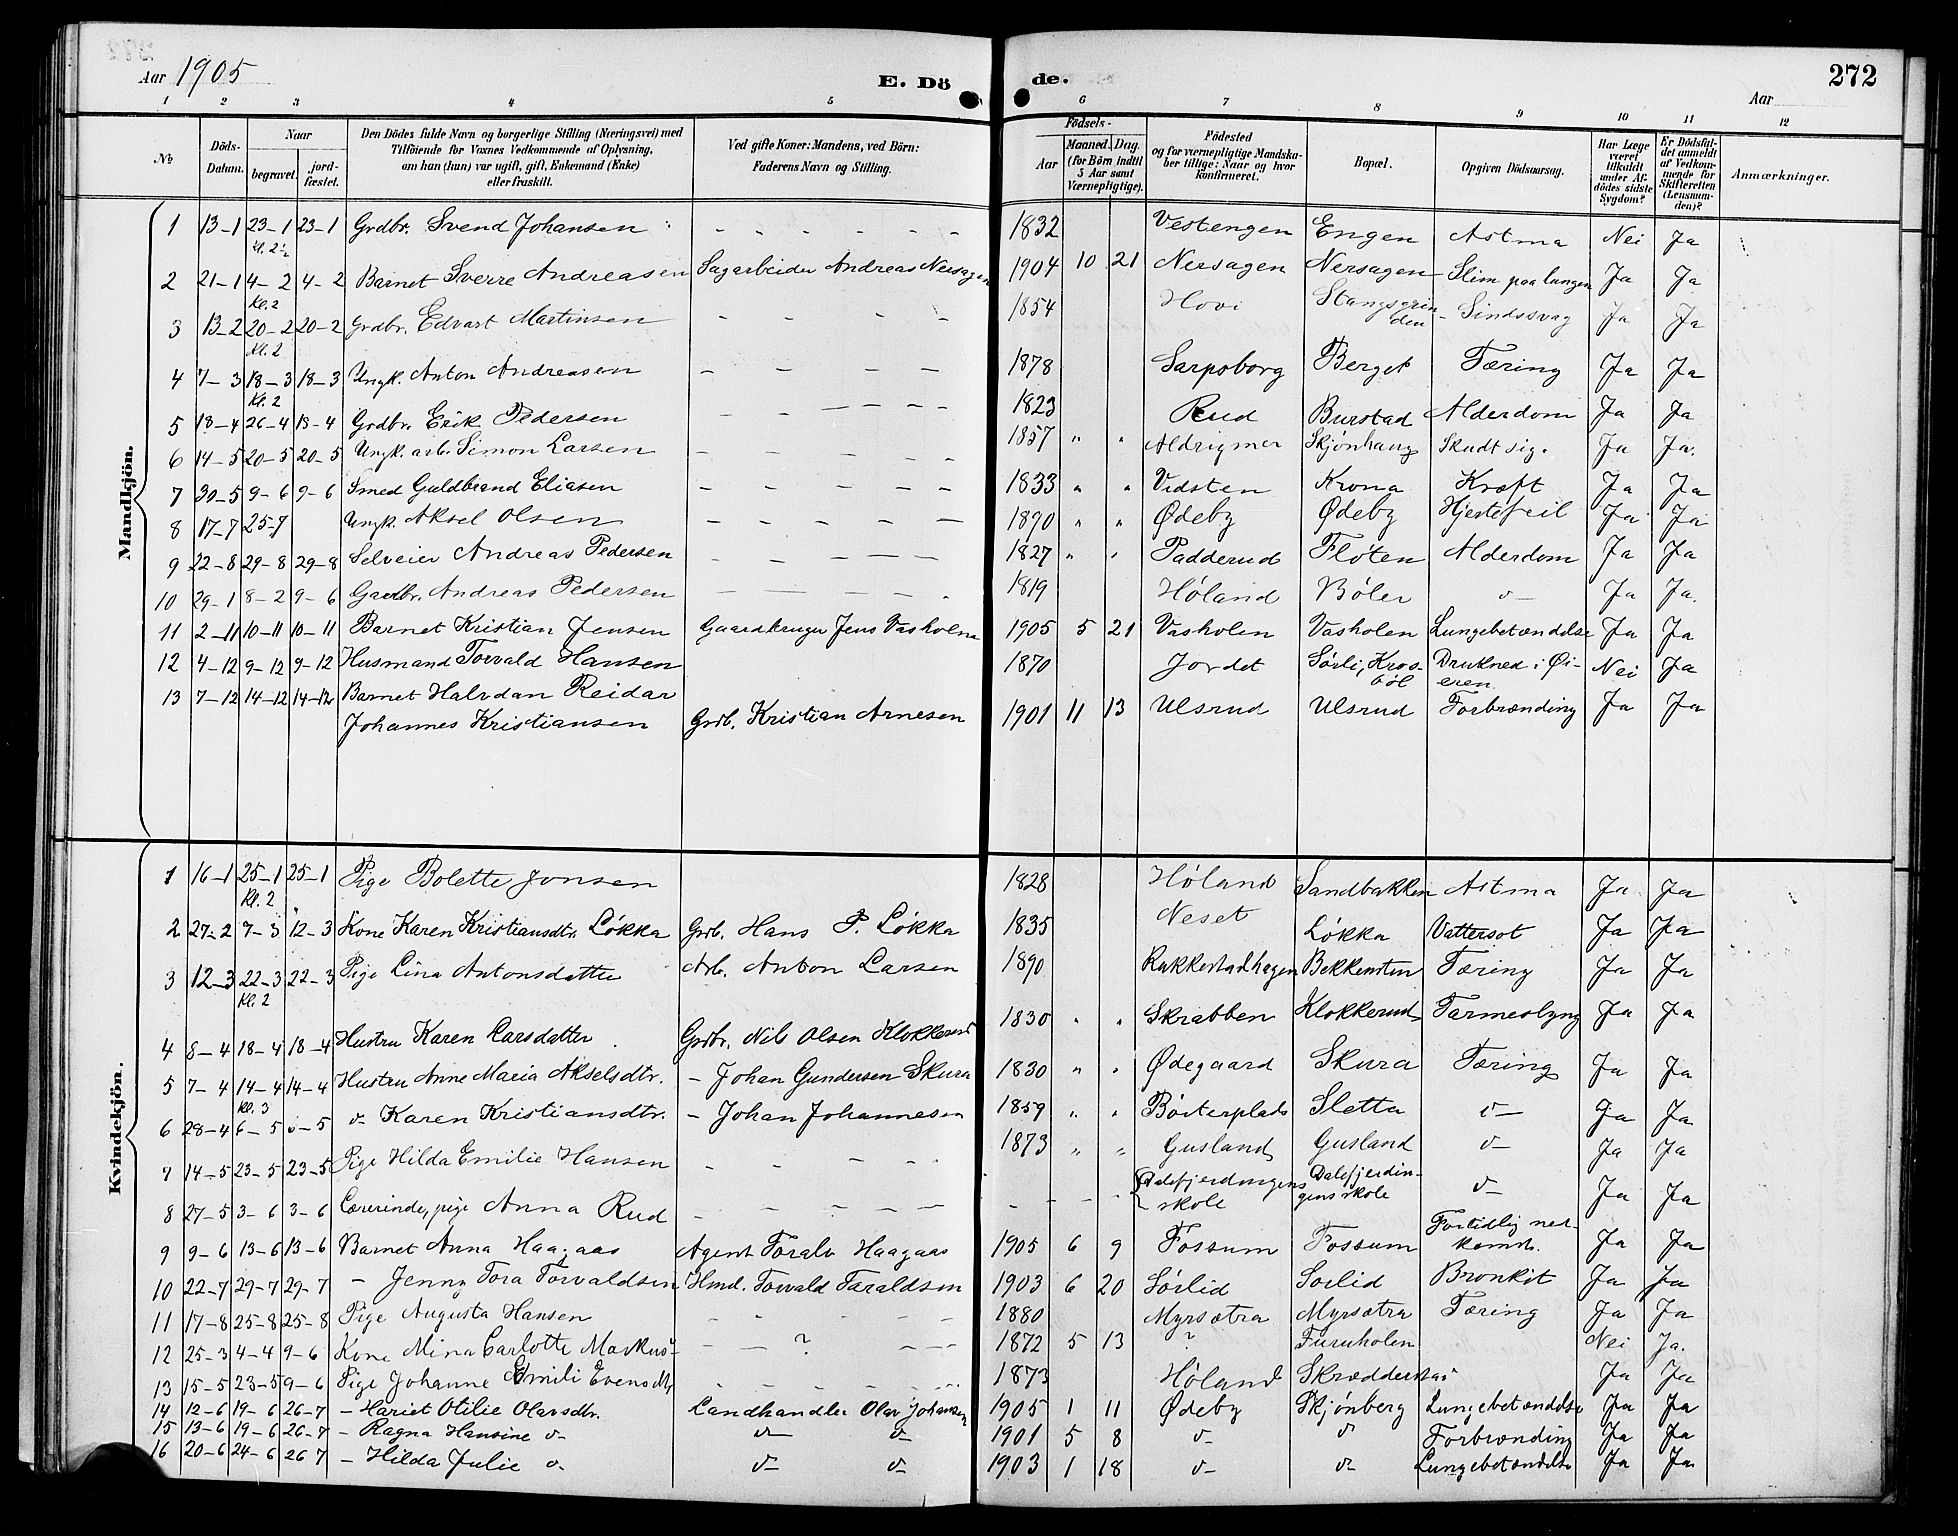 Aar 1905
E. Döde.
Aar
272
1 2 3 4 5 6 7 8 9 10 11 12
№
Döds-Datum.
Naar
begravet.
jord-fæstet.
Den Dödes fulde Navn og borgerlige Stilling (Næringsvei) med
Tilföiende for Voxnes Vedkommende af Oplysning,
om han (hun) var ugift, gift, Enkemand (Enke)
eller fraskilt.
Ved gifte Koner: Mandens, ved Börn:
Faderens Navn og Stilling.
Födsels-
Aar
Maaned. Dag.
(for Börn indtil 5 Aar samt Værnepligtige).
Födested
og for værnepligtige Mandskaber tillige: Naar og hvor konfirmeret.
Bopæl.
Opgiven Dödsaarsag.
Har Læge været tilkaldt under Afdödes sidste Sygdom?
Er Dödsfaldet anmeldt af Vedkommende for Skifteretten (Lensmanden)?
Anmærkninger.
Mandkjön.
1 13-1 23-1 kl. 2½ 23-1 Grdbr. Svend Johansen - - - - - - 1832 Vestengen Engen Astma Nei Ja
2 21-1 4-2 Kl. 2 4-2 Barnet Sverre Andreasen Sagarbeider Andreas Nersagen 1904 10 21 Nersagen Nersagen Slim paa lungen Ja Ja
3 13-2 20-2 Kl. 2 20-2 Grdbr. Edvart Martinsen - - - - 1854 Hovi Stangsgrinden - Sindssvag Ja Ja
4 7-3 18-3 Kl. 2 18-3 Ungk. Anton Andreasen - - - - 1878 Sarpsborg Berget Tæring Ja Ja
5 18-4 26-4 18-4 Grdbr. Erik Pedersen - - - - - - 1823 Rud Burstad Alderdom Ja Ja
6 14-5 20-5 20-5 Ungk. arb. Simon Larsen - - - - - 1857 " " Aldrigmer Skjønhaug Skudt sig. Ja Ja.
7 30-5 9-6 9-6 Smed Guldbrand Eliasen - - - - - 1833 " " Vidsten Krona Kræft Ja Ja
8 17-7 25-7 Ungk. Aksel Olsen - - - - - 1890 " " Ødeby Ødeby Hjertefeil Ja Ja
9 22-8 29-8 29-8 Selveier Andreas Pedersen - - - - - 1827 " " Padderud Fløten Alderdom Ja Ja
10 29-1 8-2 9-6 Gaardbr. Andreas Pedersen - - - - - 1819 Høland Bøler v- Ja Ja.
11 2-11 10-11 10-11 Barnet Kristian Jensen Gaardbruger Jens Vasholen 1905 5 21 Vasholen Vasholen Lungebetændelse Ja Ja
12 4-12 9-12 9-12 Husmand Torvald Hansen 1870 Jordet Sørli, Krosbøl Druknet i Øieren Nei Ja
13 7-12 14-12 14-12 Barnet Halvdan Reidar
Johannes Kristiansen Grdb. Kristian Arnesen 1901 11 13 Ulsrud Ulsrud Forbrænding Ja Ja
Kvindekjön.
1 16-1 25-1 Kl. 2 25-1 Pige Bolette Jonsen 1828 Høland Sandbakken Astma Ja Ja
2 27-2 7-3 12-3 Kone Karen Kristiansdtr. Løkka Grdb. Hans P. Løkka 1835 Neset Løkka Vattersot Ja Ja
3 12-3 22-3 Kl. 2 22-3 Pige Lina Antonsdatter Arb. Anton Larsen 1890 Rakkestadhagen Bekkensten Tæring Ja Ja
4 8-4 18-4 18-4 Hustru Karen Larsdatter Grdbr. Nils Olsen Klokkerud 1830 " " Skrabben Klokkerud Tarmeslyng Ja Ja
5 7-4 14-4 Kl. 3 14-4 Hustru Anne Maria Akselsdtr. - Johan Gundersen Skura 1830 " " Ødegaard Skura Tæring Ja Ja
6 28-4 6-5 6-5 v- Karen Kristiansdtr. - Johan Johannesen 1859 " " Børterplads Sletta v- Ja Ja
7 14-5 23-5 23-5 Pige Hilda Emilie Hansen - - - - - 1873 " " Gusland Gusland v- Ja Ja
8 27-5 3-6 3-6 Lærerinde, pige Anna Rud - - - - - - - - Dalefjerdingens skole Dalefjerdingens skole v- Ja Ja
9 9-6 13-6 13-6 Barnet Anna Haagaas Agent Toralv Haagaas 1905 6 9 Fossum Fossum Fortidlig nedkomst. Ja Ja
10 22-7 29-7 29-7 - Jenny Tora Torvaldsen Hmd. Torvald Taraldsen 1903 6 20 Sørlid Sørlid Bronkit Ja Ja
11 17-8 25-8 25-8 Pige Augusta Hansen - - - - - 1880 Myrsætra Myrsætra Tæring Ja Ja
12 25-3 4-4 9-6 Kone Mina Carlotte Markus- - - ? - - 1872 5 13 ? Furuholen Nei Ja.
13 15-5 23-5 9-6 Pige Johanne Emili Evensdtr - - - - - 1873 Høland Skrædderstad Ja Ja
14 12-6 19-6 26-7 - Hariet Otilie Olavsdtr. Landhandler Olav Johansen 1905 1 11 Ødeby Skjønberg Lungebetændelse Ja Ja
15 13-6 19-6 26-7 - Ragna Hansine v- v- v- 1901 5 8 v- v Forbrænding Ja Ja
16 20-6 24-6 26 7 - Hilda Julie v- v- v- 1903 1 18 v- v- Lungebetændelse Ja Ja